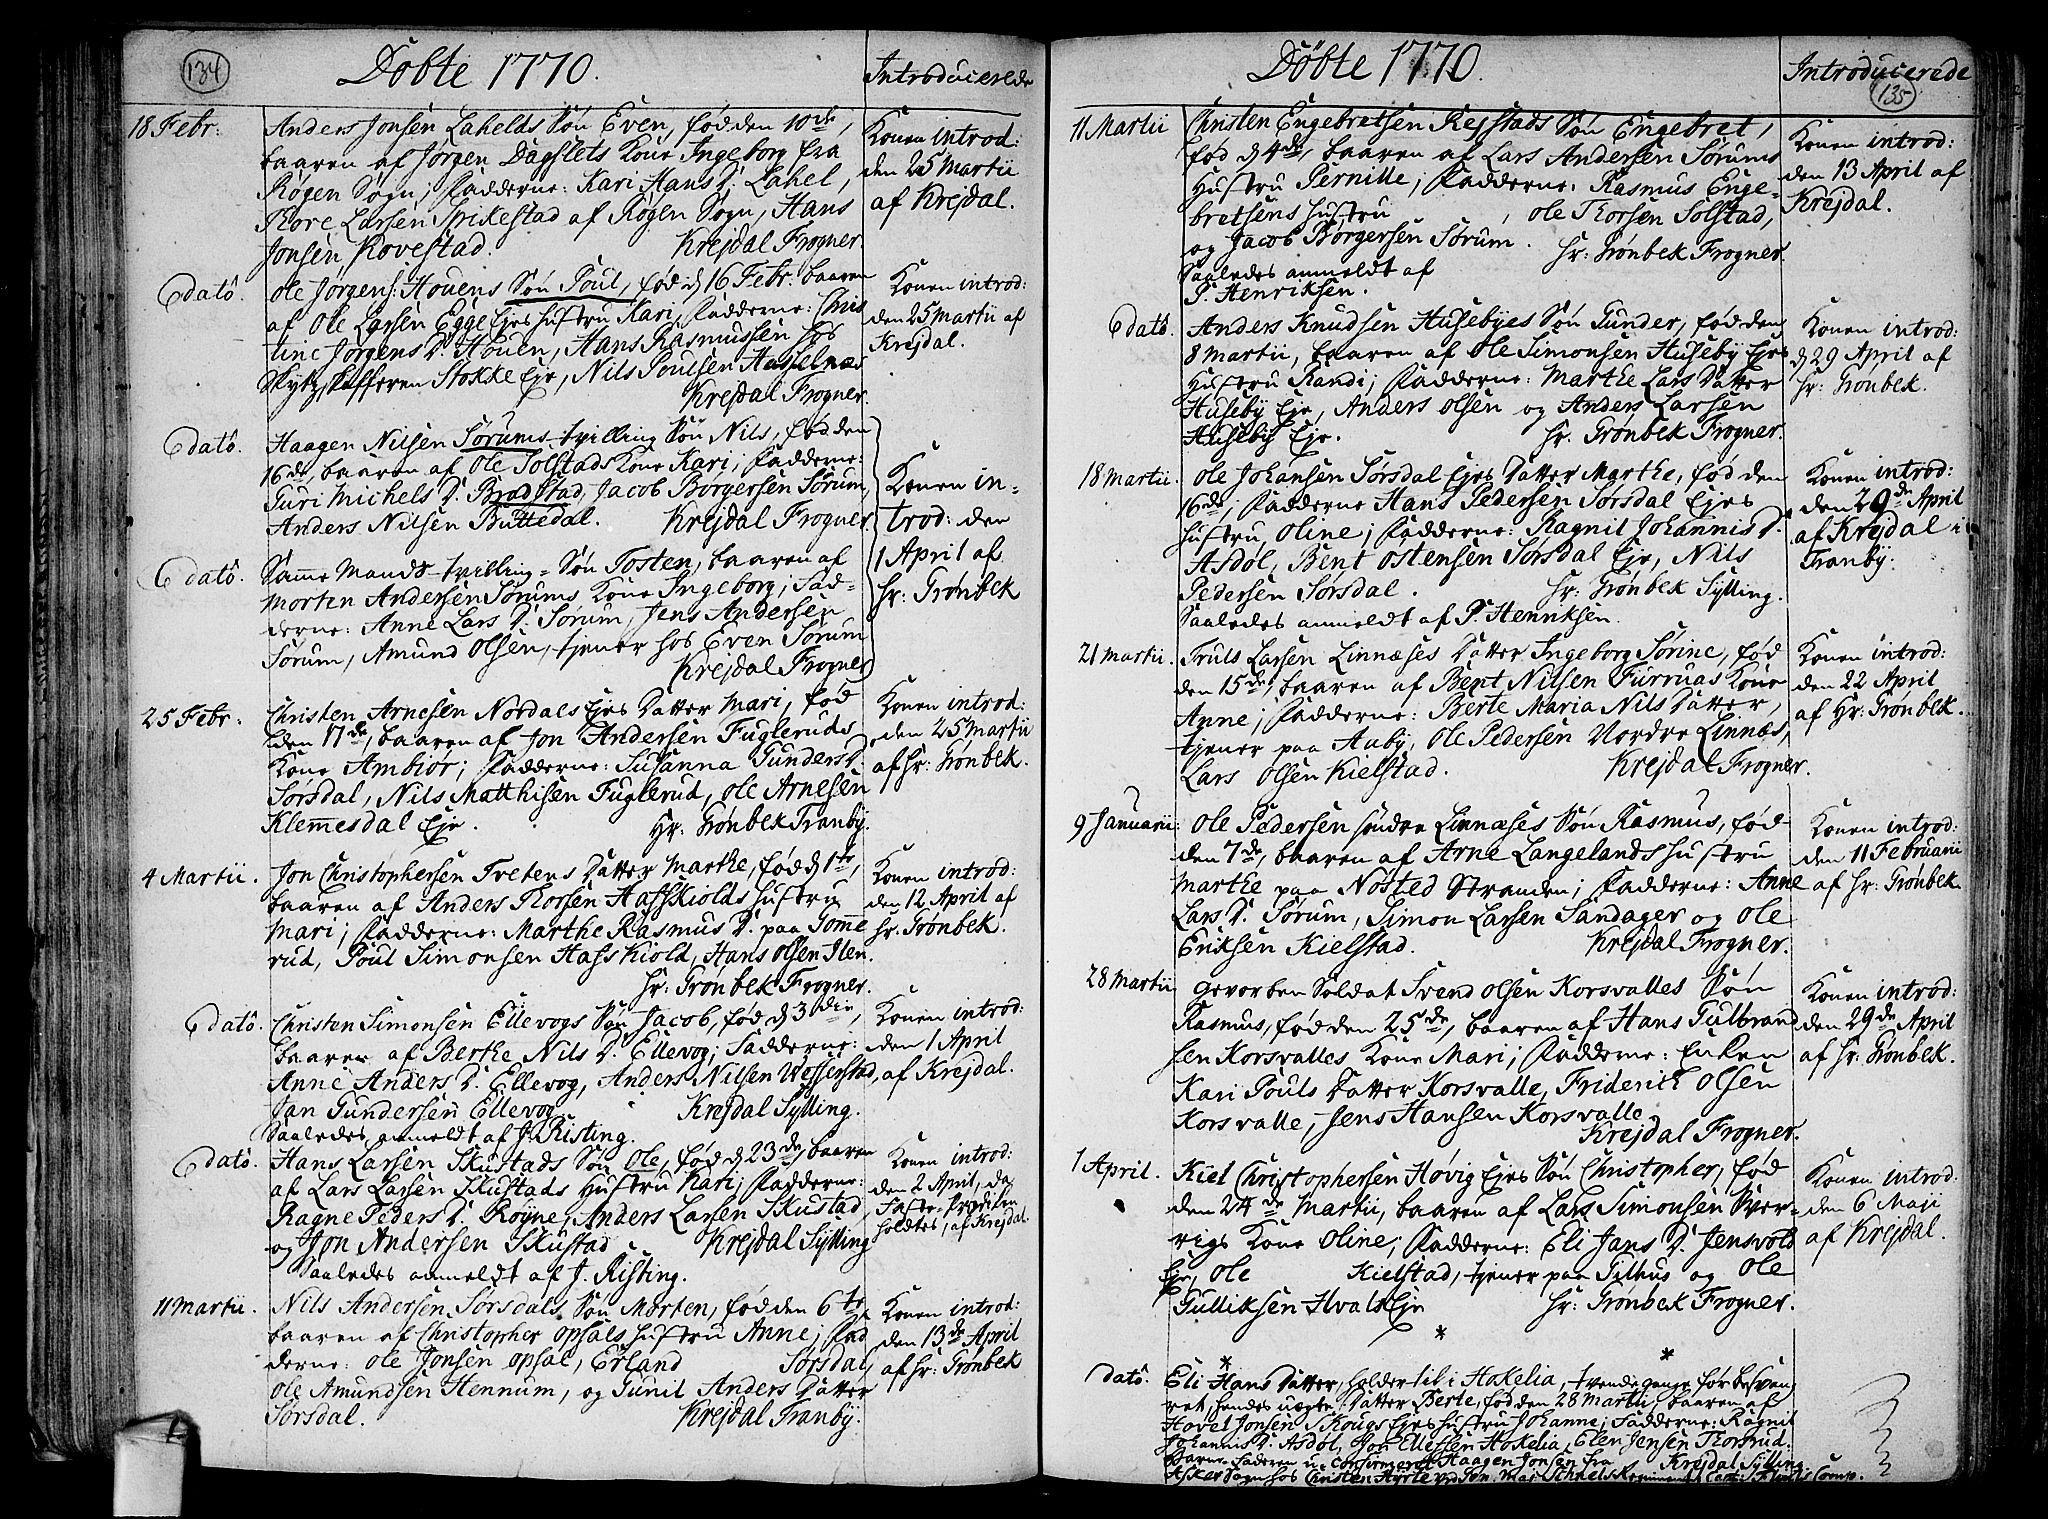 134
Döbte 1770.
Introducerede
18 Febr:
Anders Jonsen Lahelds Søn Even, fød den 10de,
baaren af Jørgen Dagslets Kone Ingeborg fra
Røgen Sogn; Fadderne: Kari Hans D. Lahel,
Thore Larsen Spikestad af Røgen Sogn, Hans
Jonsen Kovestad. Krejdal Frogner.
Konen introd:
den 25 Martii
af Krejdal.
dato.
Ole Jørgens: Houens Søn Poul, fød d 16 Febr. baaren
af Ole Larsen Egge Ejes Hustru Kari; Fadderne: Chris
tine Jørgens D. Houen, Hans Rasmussen hos
Skytz skafferen Stokke Eje, Nils Poulsen Hasselnæs
Krejdal Frogner.
Konen introd:
den 25 Martii af
Krejdal.
dato.
Haagen Nilsen Sørums tvilling Søn Nils, fød den
16de, baaren af Ole Solstads Kone Kari; Fadderne:
Guri Michels D. Bradstad, Jacob Børgersen Sørum,
Anders Nilsen Buttedal. Krejdal Frogner.
Konen in-
trod: den
1 April af
Hr: Grønbek
dato.
Samme Mands tvilling-Søn Tosten, baaren af
Morten Andersen Sørums Kone Ingeborg; Fad-
derne: Anne Lars D. Sørum, Jens Andersen
Sørum, Amund Olsen, tjener hos Even Sørum
Krejdal Frogner
25 Febr:
Christen Arnesen Nordals Ejes Datter Mari, fød
den 17de, baaren af Jon Andersen Fugleruds
Kone Ambiør; Fadderne: Susanna Gunders D.
Sørsdal, Nils Matthisen Fuglerud, Ole Arnesen
Klemmesdal Eje. Hr: Grønbek Tranby.
Konen introd:
den 25 Martii
af Hr: Grønbek.
4 Martii.
Jon Christophersen Tvetens Datter Marthe, fød d 1te,
baaren af Anders Thorsen Hasskiolds Hustru
Mari; Fadderne: Marthe Rasmus D. paa Gomme
rud, Poul Simonsen Hasskiold, Hans Olsen Ilen.
Hr: Grønbek Frogner.
Konen introd:
den 12 April af
Hr: Grønbek.
dato.
Christen Simonsen Ellevogs Søn Jacob, fød d 3die,
baaren af Berthe Nils D. Ellevog; Fadderne:
Anne Anders D. Ellevog, Anders Nilsen Wefferstad,
Jan Gundersen Ellevog. Krejdal Sylling.
Saaledes anmeldt af J. Risting.
Konen introd:
den 1 April
af Krejdal.
dato.
Hans Larsen Skustads Søn Ole, fød d 23de, baaren
af Lars Larsen Skustads Hustru Kari; Fadderne:
Ragne Peders D. Røyne, Anders Larsen Skustad,
og Jon Andersen Skustad. Krejdal Sylling
Saaledes anmeldt af J. Risting.
Konen introd:
den 2 April, da
Faste-Prædiken
holdtes, af Krejdal.
11 Martii.
Nils Andersen Sørsdals Søn Morten, fød den 6te
baaren af Christopher Opsals Hustru Anne; Fad
derne: Ole Jonsen Opsal, Erland Sørsdal,
Ole Amundsen Hennum, og Gunil Anders Datter
Sørsdal. Krejdal Tranby.
Konen introd:
den 13de April
af Hr: Grønbek
Döbte 1770.
Introducerede
135
11 Martii
Christen Engebretsen Rejstads Søn Engebret,
fød d 4de, baaren af Lars Andersen Sørums
Hustru Pernille; Fadderne: Rasmus Enge-
bretsens Hustru , Ole Thorsen Solstad,
og Jacob Børgersen Sørum. Hr: Grønbek Frogner.
Saaledes anmeldt af
P. Henriksen.
Konen introd:
den 13 April af
Krejdal.
dato.
Anders Knudsen Husebyes Søn Gunder, fød den
8 Martii, baaren af Ole Simonsen Huseby Ejes
Hustru Randi; Fadderne: Marthe Lars Datter
Huseby Eje, Anders Olsen og Anders Larsen
Huseby Eje. Hr. Grønbek Frogner.
Konen introd:
d 29 April af
Hr: Grønbek.
18 Martii.
Ole Johansen Sørsdal Ejes Datter Marthe, fød den
16de; Fadderne Hans Pedersen Sørsdal Ejes
Hustru, Oline; Fadderne: Ragnil Johannis D.
Asdøl, Bent Ostensen Sørsdal Eje, Nils
Pedersen Sørsdal. Hr: Grønbek Sylling.
Saaledes anmeldt af P. Henriksen.
Konen introd:
den 29de April
af Krejdal i
Tranby.
21 Martii.
Truls Larsen Linnæses Datter Ingeborg Sørine, fød
den 15de, baaren af Bent Nilsen Furruas Kone
Anne; Fadderne: Berte Maria Nils Datter,
tjener paa Auby, Ole Pedersen Nordre Linnæs,
Lars Olsen Kielstad. Krejdal Frogner.
Konen introd:
den 22 April
af Hr: Grønbek.
9 Januarii
Ole Pedersen søndre Linnæses Søn Rasmus, fød
den 7de, baaren af Arne Langelands Hustru
Marthe paa Nøsted Stranden; Fadderne: Anne
Lars D. Sørum, Simon Larsen Sandager og Ole
Eriksen Kielstad. Krejdal Frogner.
Konen introd:
den 11 Februarii
af Hr: Grønbek.
28 Martii
Gevorben Soldat Svend Olsen Korsvalles Søn
Rasmus, fød den 25de, baaren af Hans Gulbrand
sen Korsvalles Kone Mari; Fadderne: Enken
Kari Pouls Datter Korsvalle, Friderich Olsen
Korsvalle, Jens Hansen Korsvalle
Krejdal Frogner.
Konen introd:
den 29de April
af Hr: Grønbek.
1 April.
Kiel Christophersen Høvig Ejes Søn Christopher, fød
den 24de Martii, baaren af Lars Simonsen Sver-
rigs Kone Oline; Fadderne: Eli Jans D. Jensvold
Eje, Ole Kielstad, tjener paa Gilhus og Ole
Gulliksen Hvals Eje Hr: Grønbek Frogner.
Konen introd:
den 6 Maji
af Krejdal.
dato.
Eli Hans Datter, holder til i Hokelia, tvende gange for besvang
ret, hendes uægte Datter Berte, fød den 28 Martii, baaren af
Hovel Jonsen Skougs Ejes Hustru Johanne; Fadderne: Ragnil
Johannis D. Asdøl, Jon Ellefsen Hokelia, Elen Jensen Thorsrud.
Barne-Faderen u-confirmeret Haagen Jonsen fra Krejdal Sylling
Asker Sogn hos Christen Hyrte